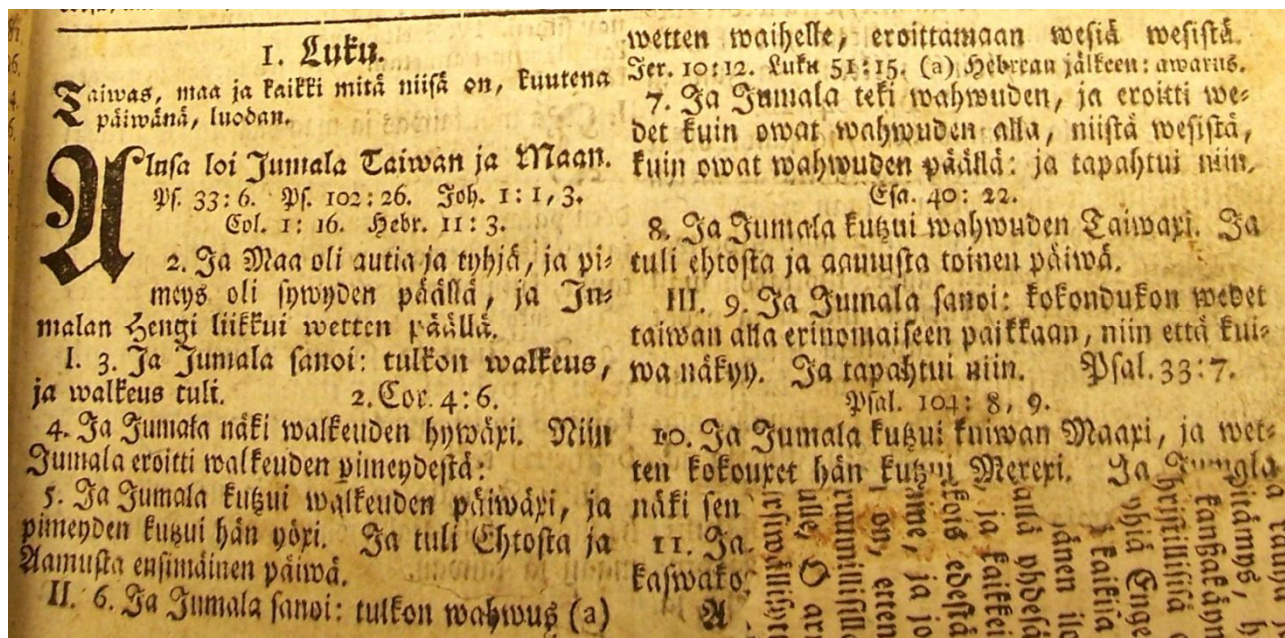 1. Luku.
Taiwas, maa ja kaikki mitä niisä on, kuutena
päiwänä, luodan.
Alusa loi Jumala Taiwan ja Maan.
Ps. 33:6. Ps. 102:26. Joh. 1:1,3.
Col. 1:16. Hebr. 11:3.
2. Ja Maa oli autia ja tyhjä, ja pi-
meys oli sywyden päällä, ja Ju-
malan Hengi liikkui wetten päällä.
I. 3. Ja Jumala sanoi: tulkon walkeus,
ja walkeus tuli. 2. Cor. 4:6.
4. Ja Jumala näki walkeuden hywäxi. Niin
Jumala eroitti walkeuden pimeydestä:
5. Ja Jumala kutzui walkeuden päiwäxi, ja
pimeyden kutzui hän yöxi. Ja tuli Ehtosta ja
Aamusta ensimäinen päiwä.
II. 6. Ja Jumala sanoi: tulkon wahwus (a)
wetten waihelle, eroittamaan wesiä wesistä.
Jer. 10:12. Luku 51:15. (a) Hebrean jälkeen: awarus.
7. Ja Jumala teki wahwuden, ja eroitti we-
det kuin owat wahwuden alla, niistä wesistä,
kuin owat wahwuden päällä: ja tapahtui niin.
Esa. 40: 22.
8. Ja Jumala kutzui wahwuden Taiwaxi. Ja
tuli ehtosta ja aamusta toinen päiwä.
III. 9. Ja Jumala sanoi: kokondukon wedet
taiwan alla erinomaiseen paikkaan, niin että kui-
wa näkyy. Ja tapahtui niin. Psal. 33:7.
Psal. 104: 8, 9.
10. Ja Jumala kutzui kuiwan Maaxi, ja wet-
ten kokouxet hän kutzui Merexi. Ja Jumala
näki sen
11. Ja
kaswako
A
on, etten
ame, ja jo
kois edestä
ja kaikkei
yhdesä
änen
kaikija
yhiä Enge
hristillisiä
kanßakäy